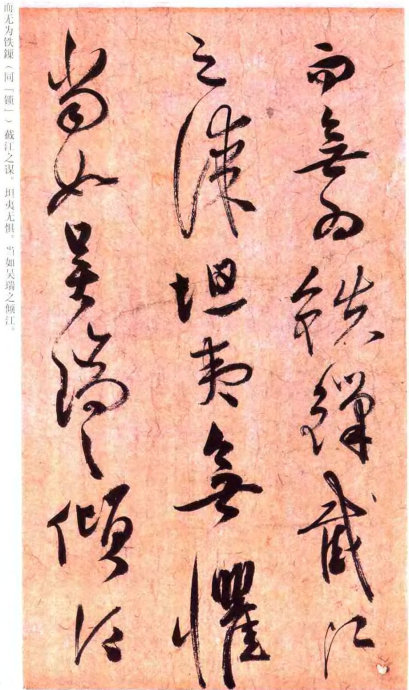 而無為鉄鏁截江
之謀坦夷無懼
當如吳瑞之傾江
而无为铁鏁（同「锁」）截江之谋。坦夷无惧，当如吴瑞之倾江。